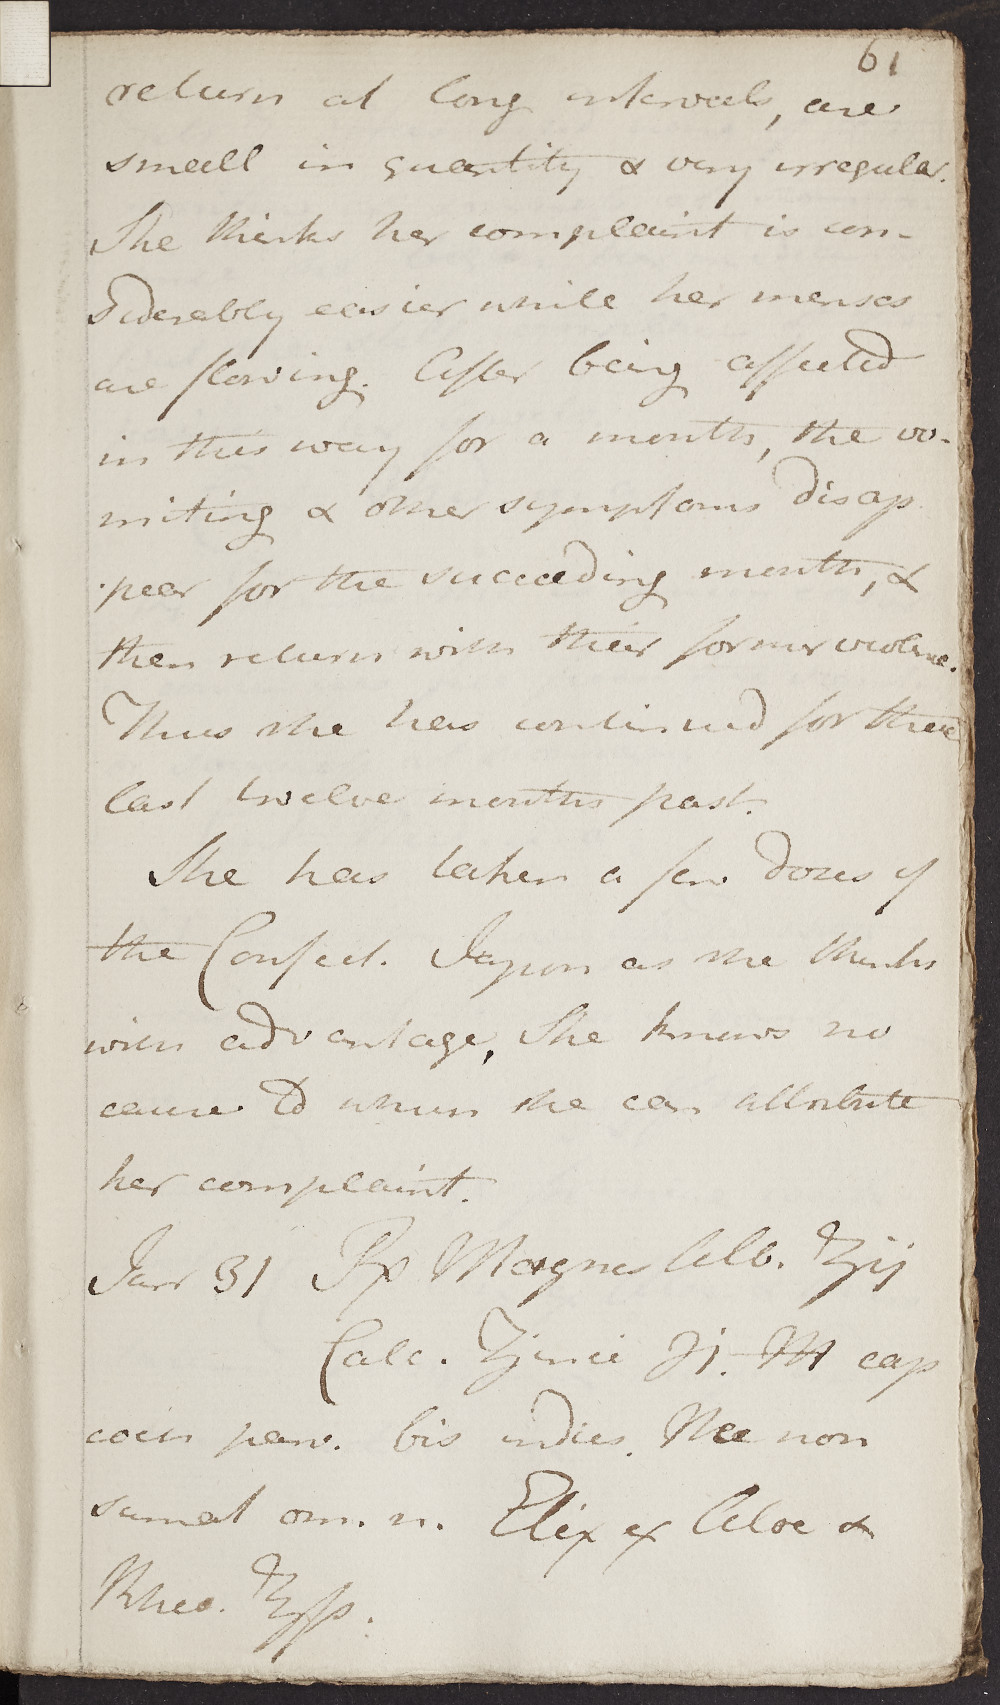 61
return at long intervals, are
small in quantity & very irregular.
She thinks her complaint is con-
siderably easier while her menses
are flowing. After being affected
in this way for a month, the vo-
miting & other symptoms disap
-pear for the succeeding month, &
then return with their former violence.
Thus she has continued for these
last twelve months past.
She has taken a few doses of
the Confect. Japon as she thinks
with advantage, She knows no
cause to whch she can attribute
her complaint.
Janr 31 Rx Magnes Alb. ʒij
Calc. Zinci ℈j. M cap
coch parv. bis indies. Nec non
sumat om. n. Elix ex Aloe &
Rheo. ʒss.